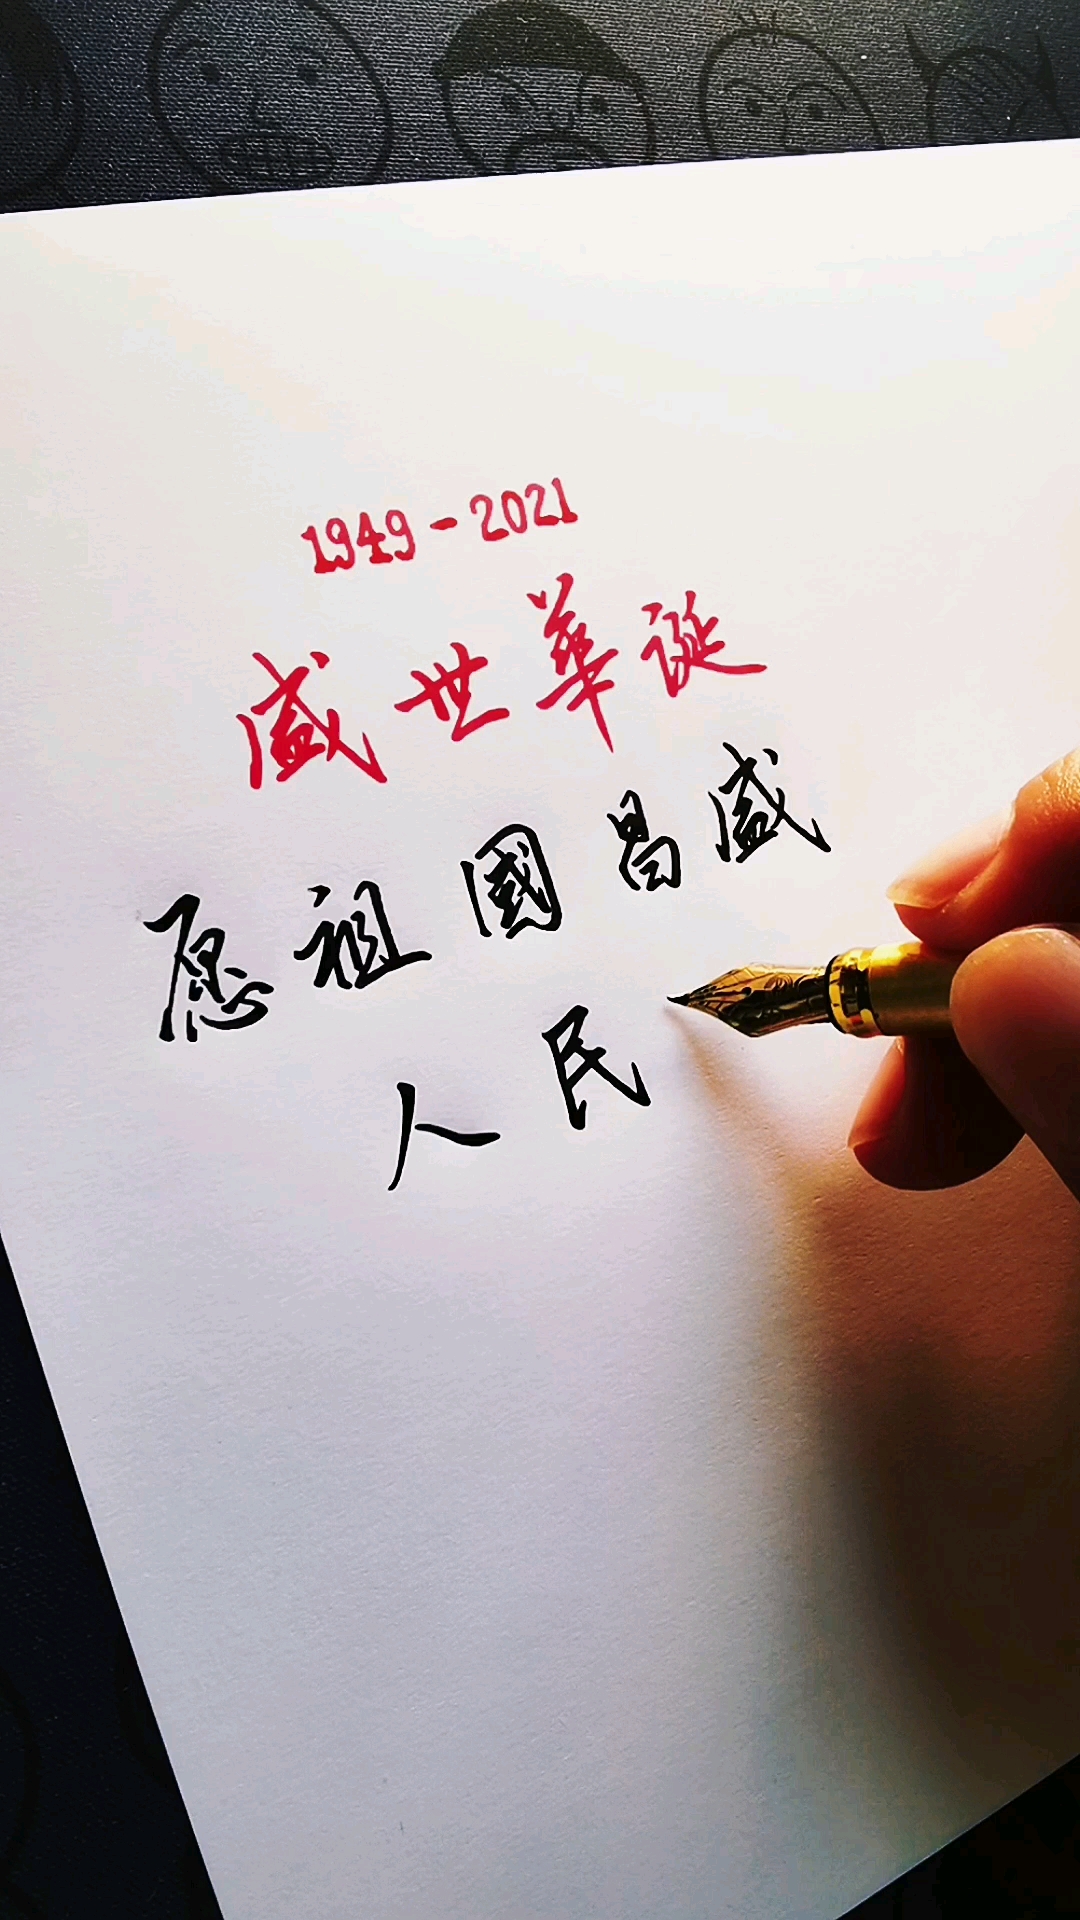 1949-2021
盛世華诞
愿祖國昌盛
人民